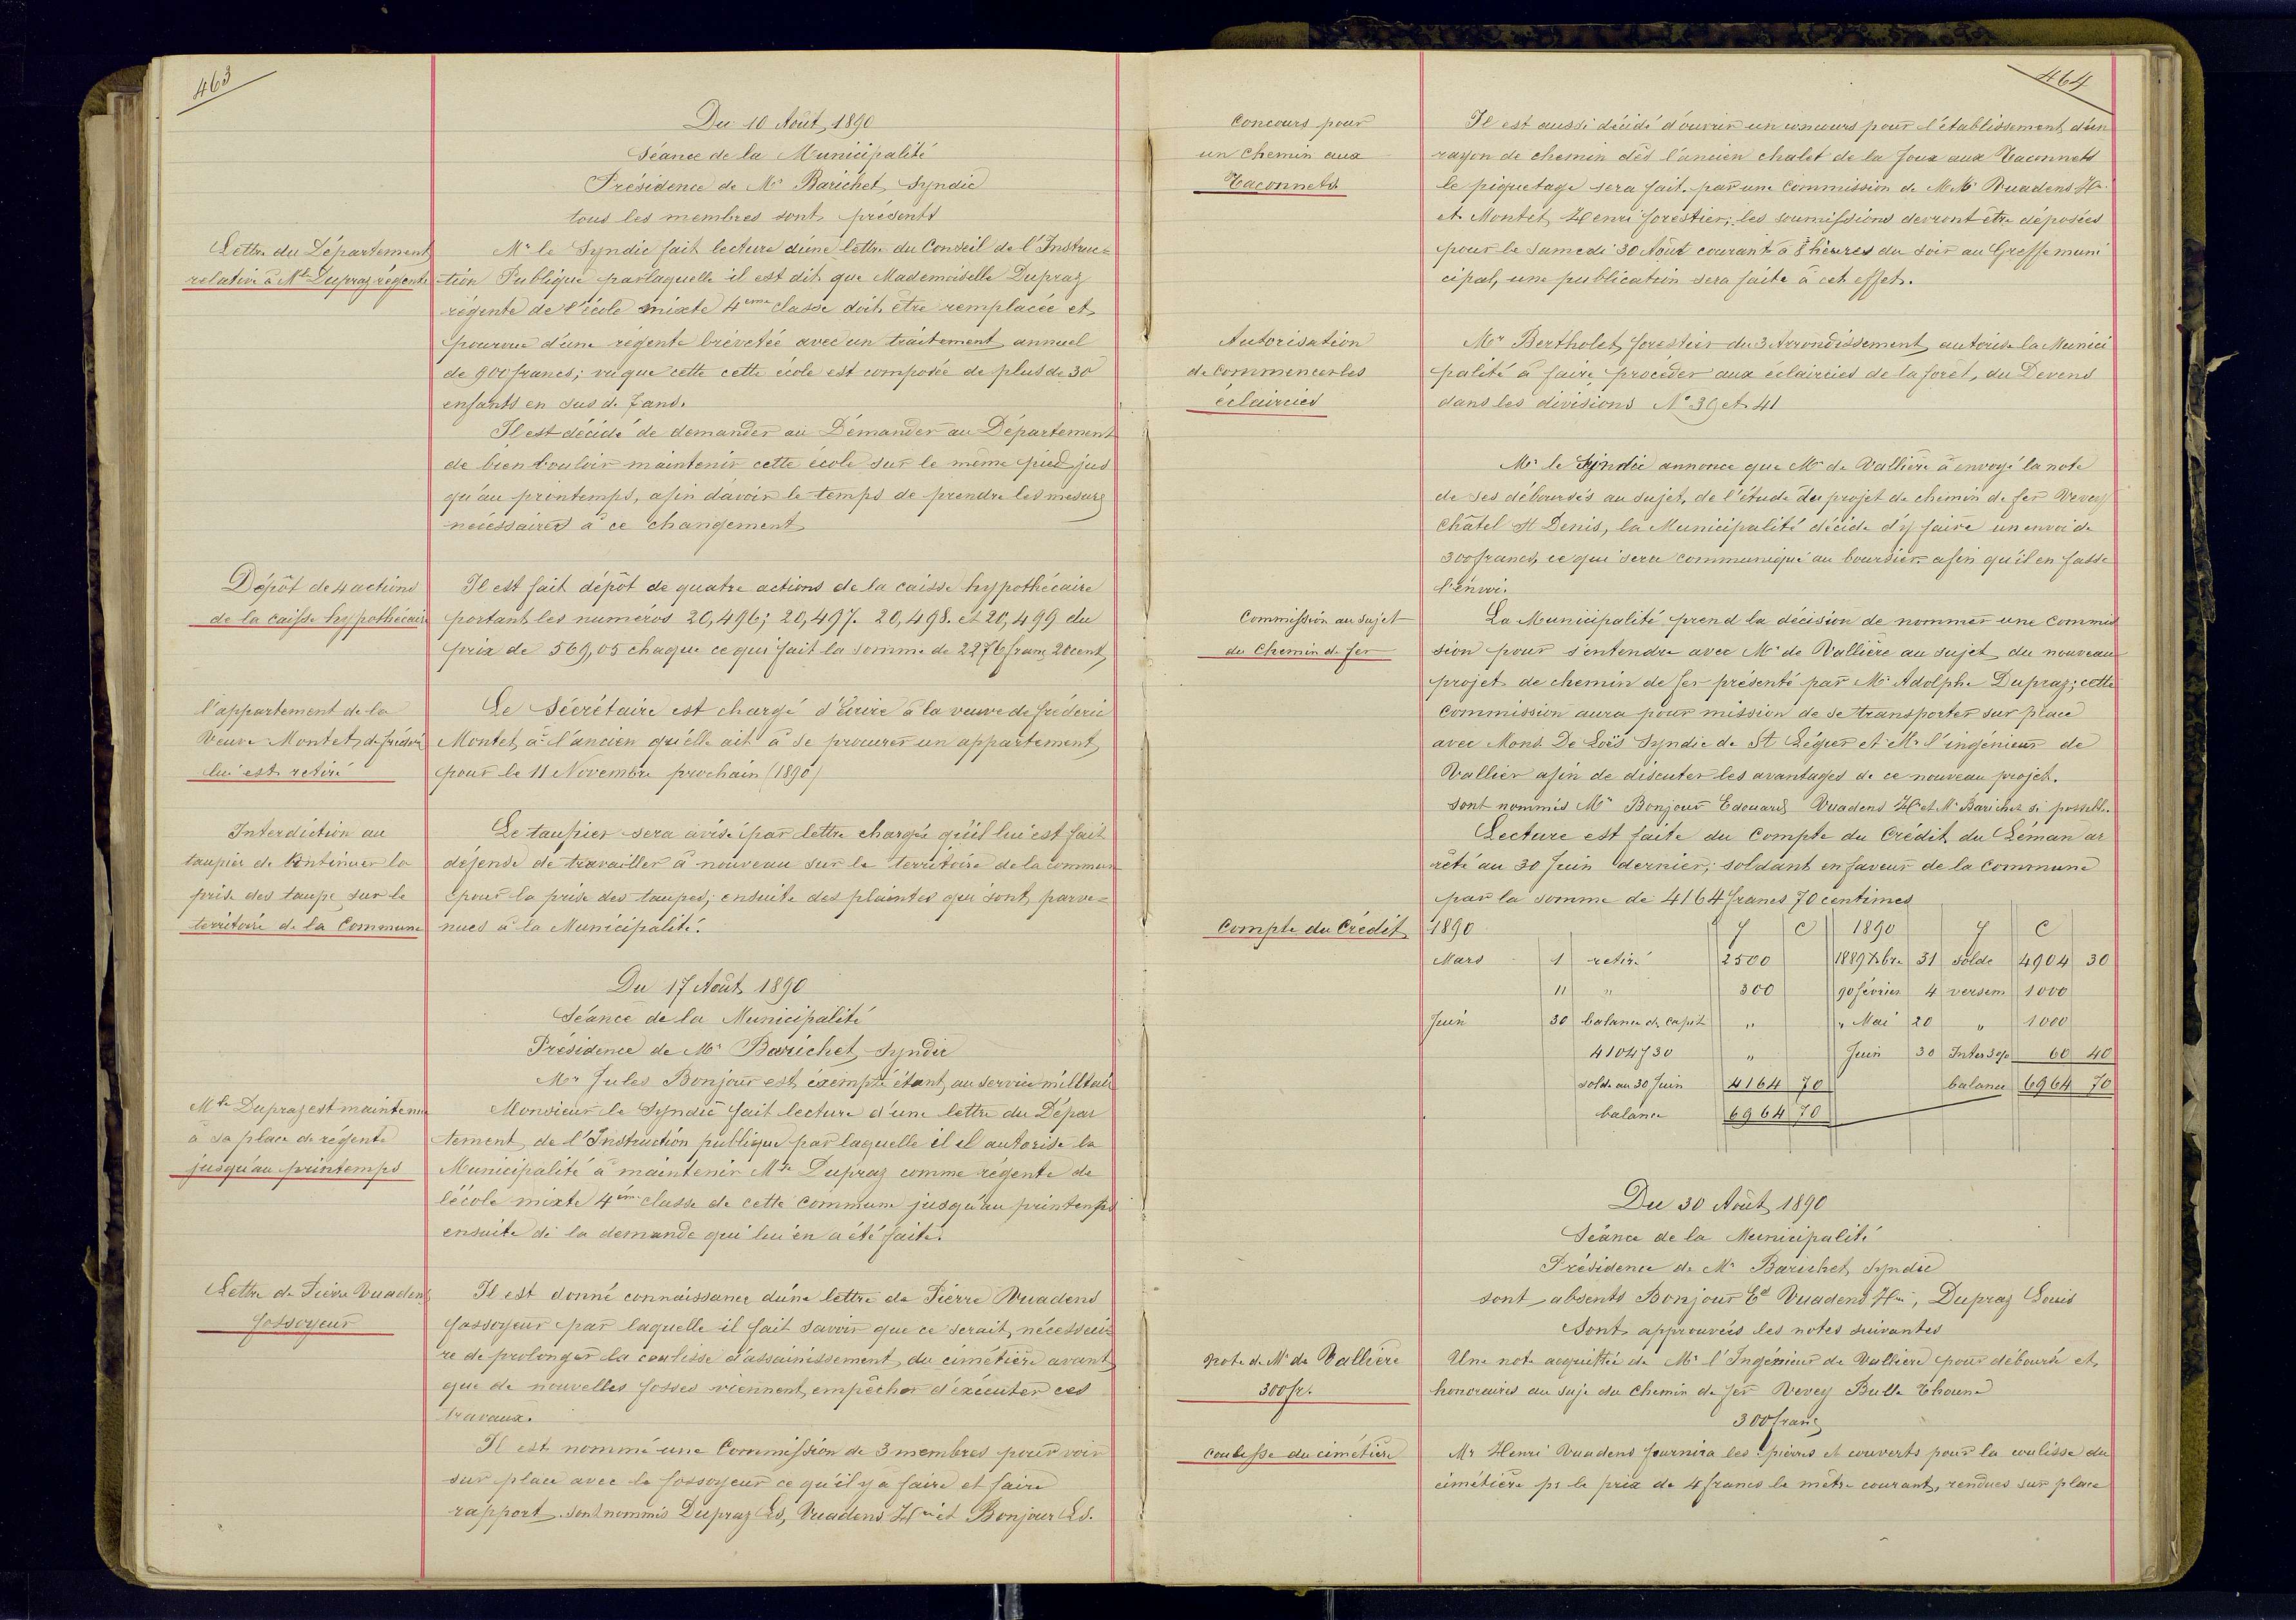 463
Du 10 Août 1890
Séance de la Municipalité
Présidence de Mr Barichet Syndic
tous les membres sont présents
Lettre du Département
relative à Mlle Dupraz régente
Mr le Syndic fait lecture d'une lettre du Conseil de l'Instruc=
tion Publique par laquelle il est dit que Mademoiselle Dupraz
régente de l'école mixte 4ème classe doit être remplacée et
pourvue d'une régente brévetée avec un traitement annuel
de 900 francs; vu que cette cette école est composée de plus de 30
enfants en sus de 7 ans.
Il est décidé de demander au Démander au Département
de bien vouloir maintenir cette école sur le même pied jus
qu'au printemps, afin d'avoir le temps de prendre les mesures
nécessaires à ce changement
Dépôt de 4 actions
de la caisse hypothécaire
Il est fait dépôt de quatre actions de la caisse hypothécaire
portant les numéros 20,496; 20,497. 20,498. et 20,499 du
prix de 569,05 chaque ce qui fait la somme de 2276 francs 20 cent,
l'appartement de la
Veuve Montet de fréderic
lui est retiré
Le Sécrétaire est chargé d'écrire à la veuve de fréderic
Montet à l'ancien qu'elle ait à se procurer un appartement
pour le 11 Novembre prochain (1890)
Interdiction au
taupier de Continuer la
prise des taupe sur le
territoire de la Commune
Le taupier sera avisé par lettre chargée qu'il lui est fait
défense de travailler à nouveau sur le territoire de la commune
pour la prise des taupes; ensuite des plaintes qui sont parve=
nues à la Municipalité.
Du 17 Août 1890
Séance de la Municipalité
Présidence de Mr Barichet Syndic
Mr Jules Bonjour est exempté étant au service militaire
Mlle Dupraz est maintenue
à sa place de régente
jusqu'au printemps
Monsieur le Syndic fait lecture d'une lettre du Dépar
tement de l'Instruction publique par laquelle il il autorise la
Municipalité à maintenir Mlle Dupraz comme régente de
l'école mixte 4ème classe de cette commune jusqu'au printemps
ensuite de la demande qui lui en a été faite.
Lettre de Pierre Vuadens
fossoyeur
Il est donné connaissance d'une lettre de Pierre Vuadens
fossoyeur par laquelle il fait savoir que ce serait nécessai=
re de prolonger la coulisse d'assainissement du cimetière avant
que de nouvelles fosses viennent empêcher d'exécuter ces
travaux.
Il est nommé une Commission de 3 membres pour voir
sur place avec le fossoyeur ce qu'il y a à faire et faire
rapport. sont nommés Dupraz Ls, Vuadens Hri et Bonjour Ed.
464
Concours pour
un Chemin aux
Taconnets
Il est aussi décidé d'ouvrir un concours pour l'établissement d'un
rayon de chemin dès l'ancien chalet de la Joux aux Taconnets
le piquetage sera fait par une Commission de MM Vuadens Hri
et Montet Henri forestier; les soumissions devront être déposées
pour le Samedi 30 Août courant à 8 heures du soir au Greffe muni
cipal, une publication sera faite à cet effet.
Autorisation
de Commencer les
éclaircies
Mr Bertholet forestier du 3 Arrondissement autorise la Munici
palité à faire procéder aux éclaircies de la forêt, du Devens
dans les divisions No 39 et 41
Mr le Syndic annonce que Mr de Vallière a envoyé la note
de ses déboursés au sujet, de l'étude du projet de chemin de fer Vevey
Châtel St Denis, la Municipalité décide d'y faire un envoi de
300 francs, ce qui sera communiqué au boursier afin qu'il en fasse
l'envoi.
Commission au sujet
du Chemin de fer
La Municipalité prend la décision de nommer une Commis
sion pour s'entendre avec Mr de Vallière au sujet du nouveau
projet de chemin de fer présenté par Mr Adolphe Dupraz; cette
Commission aura pour mission de se transporter sur place
avec Mons. De Loës Syndic de St Légier et Mr l'ingénieur de
Vallier afin de discuter les avantages de ce nouveau projet.
sont nommés Mr Bonjour Edouard, Vuadens Hri et Mr Barichet si possible.
Lecture est faite du Compte du Crédit du Léman ar
rêté au 30 Juin dernier; soldant en faveur de la Commune
par la somme de 4164 francs 70 centimes
Compte du Crédit
1890 f C 1890 f C
Mars 1 retiré 2500 1889 Xbre 31 Solde 4904 30
11 " 300 90 février 4 versem 1000
Juin 30 balance de capit " " Mai 20 " 1000
4104f30 " Juin 30 Inter 3% 60 40
solde au 30 Juin 4164 70 balance 6964 70
balance 6964 70
Du 30 Août 1890
Séance de la Municipalité
Présidence de Mr Barichet Syndic
sont absents Bonjour Ed Vuadens Hri, Dupraz Louis
Sont approuvées les notes suivantes
Note de Mr de Vallière
300 fr.
Une note acquittée de Mr l'Ingénieur de Vallière pour déboursé et
honoraires au suje du chemin de fer Vevey Bulle Thoune
300 francs
Coulisse du cimetière
Mr Henri Vuadens fournira les pierres et couverts pour la coulisse du
cimétière pr le prix de 4 francs le mètre courant, rendues sur place